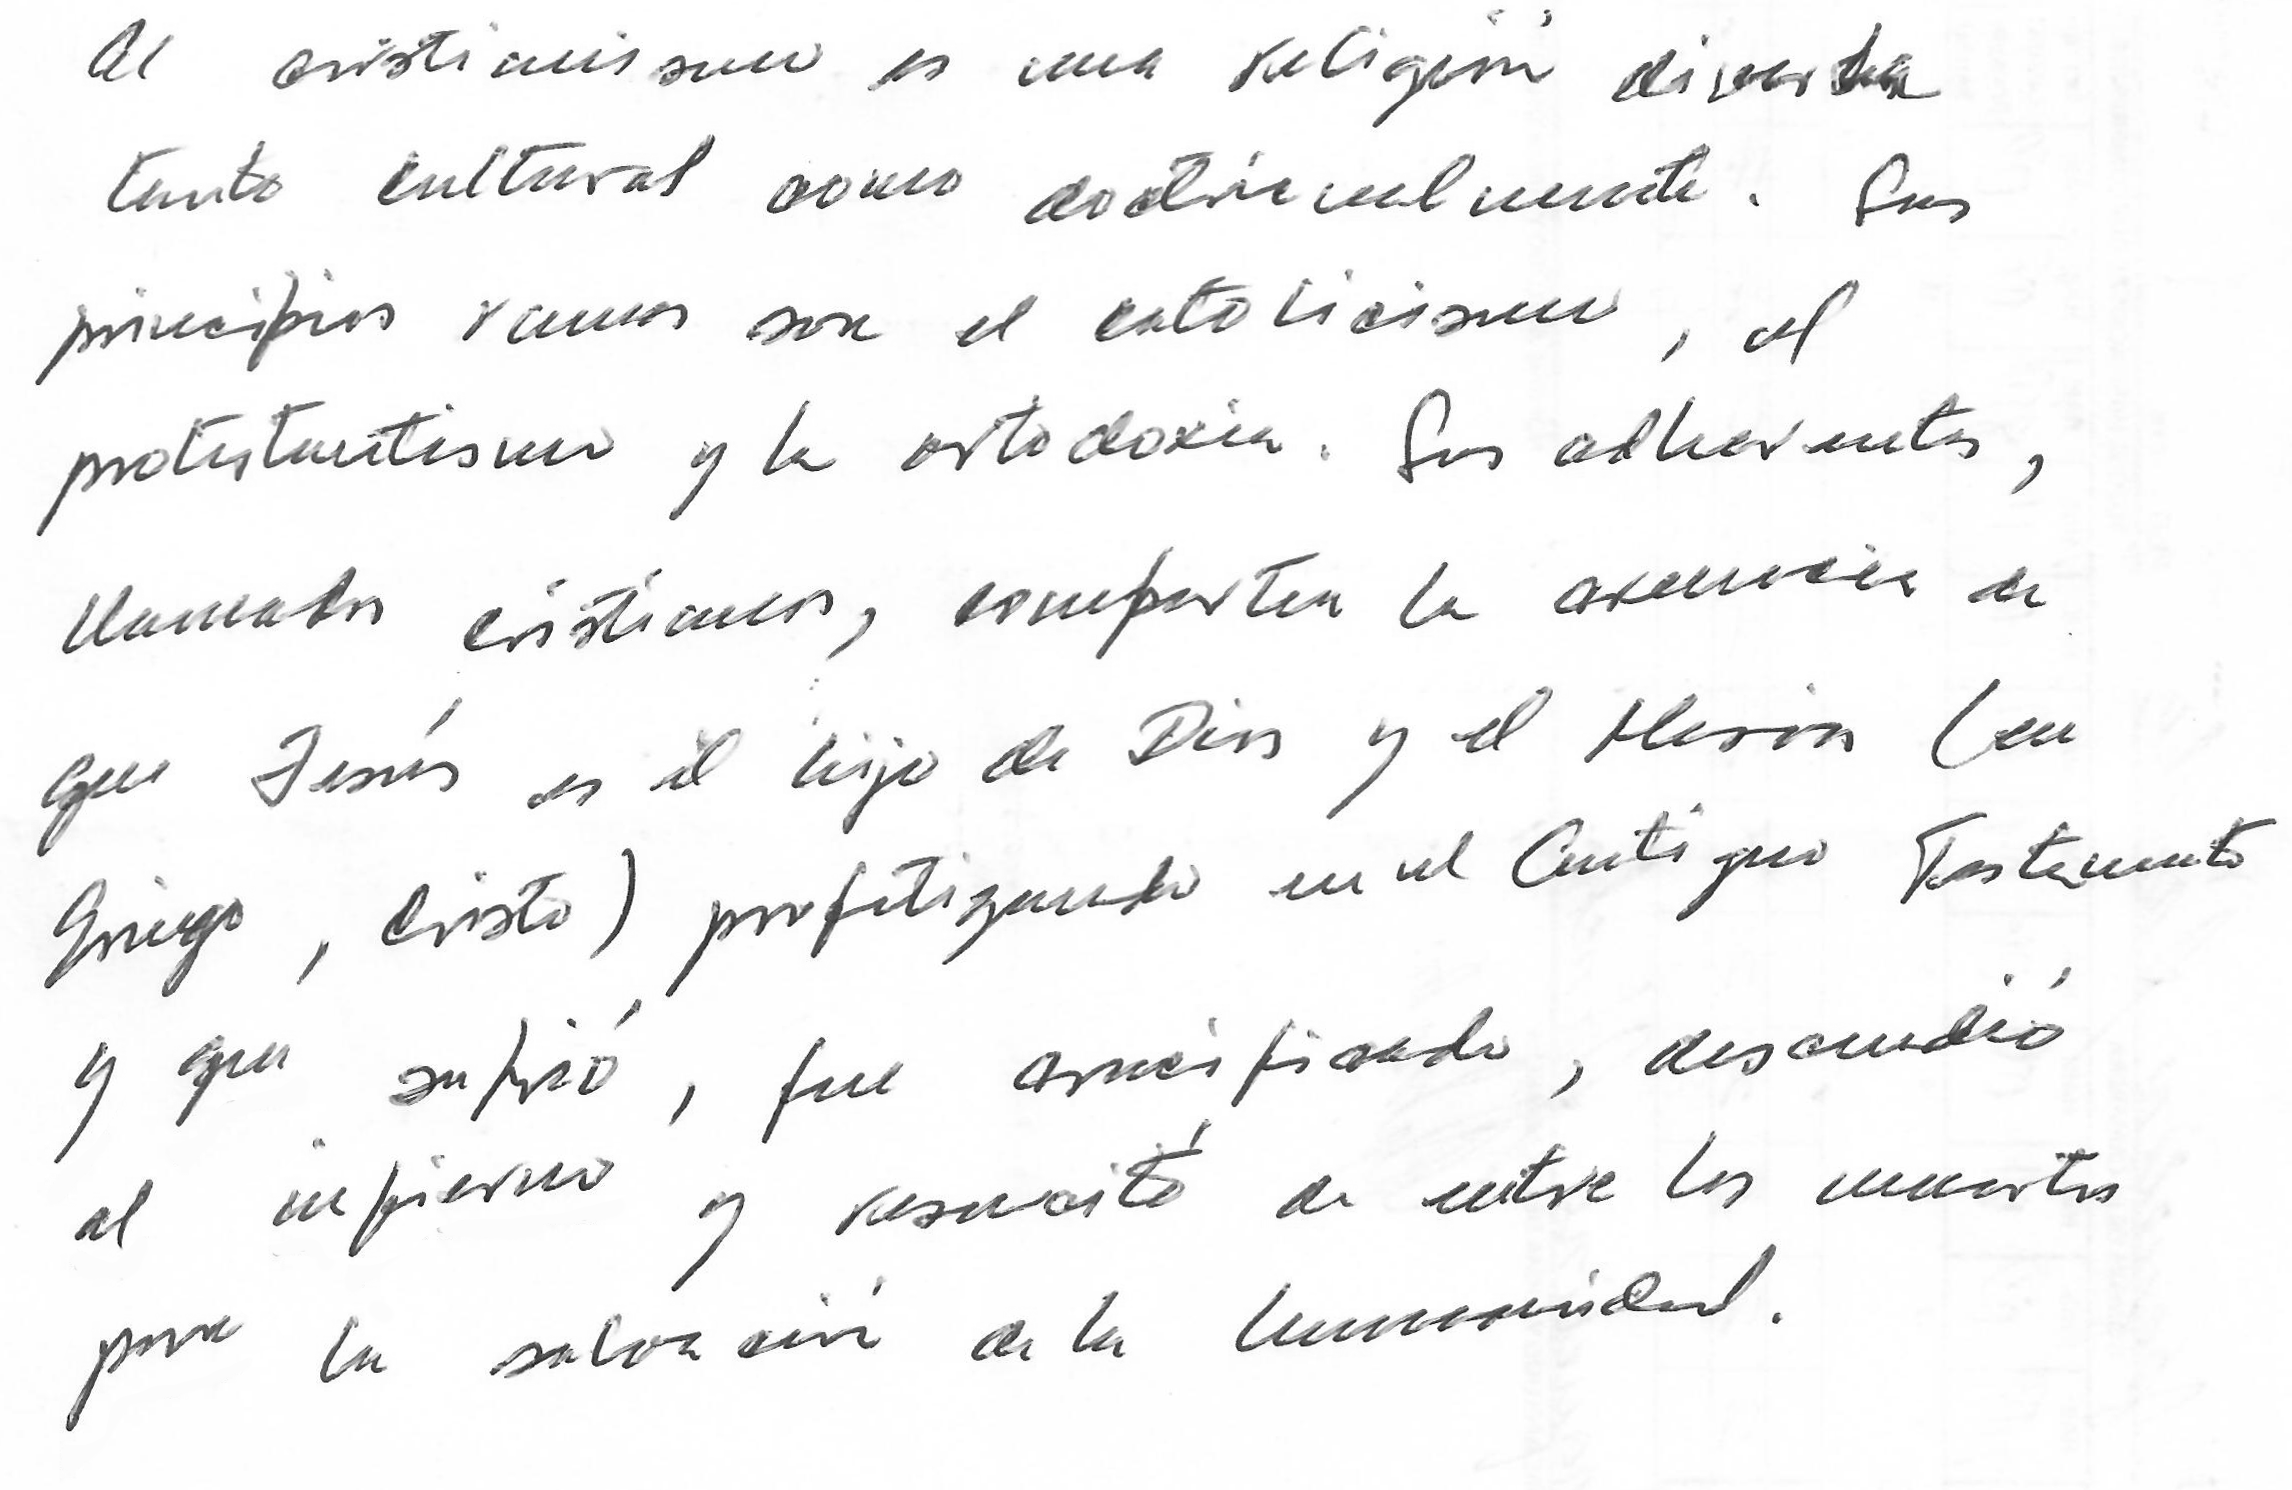 El cristianismo es una religión diversa
tanto cultural como doctrinalmente. Sus
principios ramas son el catolicismo, el
protestantismo y la ortodoxia. Sus adherentes,
llamados cristianos, comparten la creencia de
que Jesús es el hijo de Dios y el Mesías (en
Griego, Cristo) profetizando en el Antiguo Testamento
y que sufrió, fue crucificado, descendió
al infierno y resucitó de entre los muertos
para la salvación de la humanidad.